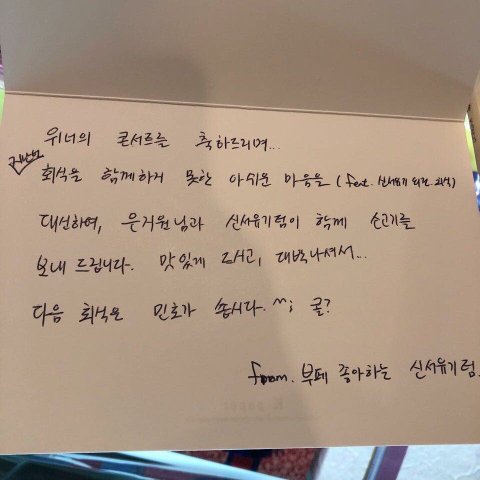 위너의 콘서트를 축하드리며...
지난번
회식을 함께하지 못한 아쉬운 마음을 (feat. 신서유기 외전 회식)
대신하여, 은지원님과 신서유기팀이 함께 손고기를
보내 드립니다. 맛있게 드시고, 대박나셔서...
다음 회식은 민호가 쏩시다.^^; 콜?
from. 부페 좋아하는 신서유기팀.